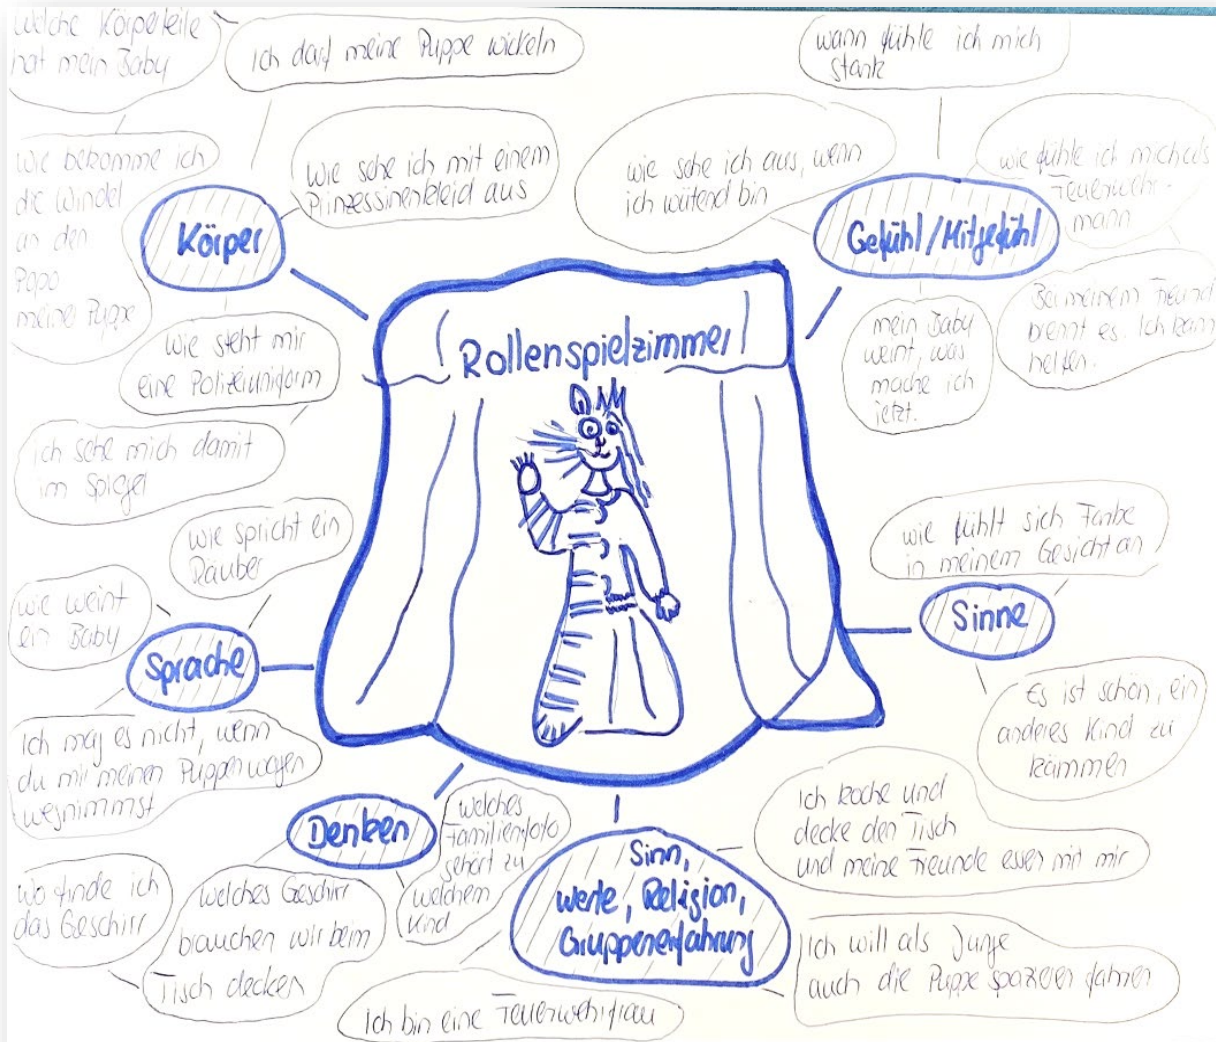 Welche Körperteile
hat mein Baby
ich darf meine Puppe wickeln
wann fühle ich mich
stark
wie bekomme ich
die Windel
an den
Popo
meine Puppe
wie sehe ich mit einem
Prinzessinenkleid aus
wie sehe ich aus, wenn
ich wütend bin
wie fühle ich mich als
Feuerwehr-
mann
Körper
Gefühl/Mitgefühl
wie steht mir
eine Polizeiuniform
Rollenspielzimmer
mein Baby
weint, was
mache ich
jetzt.
Bei meinem Freund
brennt es. Ich kann
helfen.
ich sehe mich damit
im Spiegel
wie spricht ein
Räuber
wie fühlt sich Farbe
in meinem Gesicht an
wie weint
ein Baby
Sprache
Sinne
Es ist schön, ein
anderes Kind zu
kämmen
Ich mag es nicht, wenn
du mir meinen Puppenwagen
wegnimmst
Denken
welches
Familienfoto
gehört zu
welchem
Kind
Sinn,
Werte, Religion,
Gruppenerfahrung
Ich koche und
decke den Tisch
und meine Freunde essen mit mir
wo finde ich
das Geschirr
welches Geschirr
brauchen wir beim
Tisch decken
Ich will als Junge
auch die Puppe spazieren fahren
Ich bin eine Feuerwehrfrau